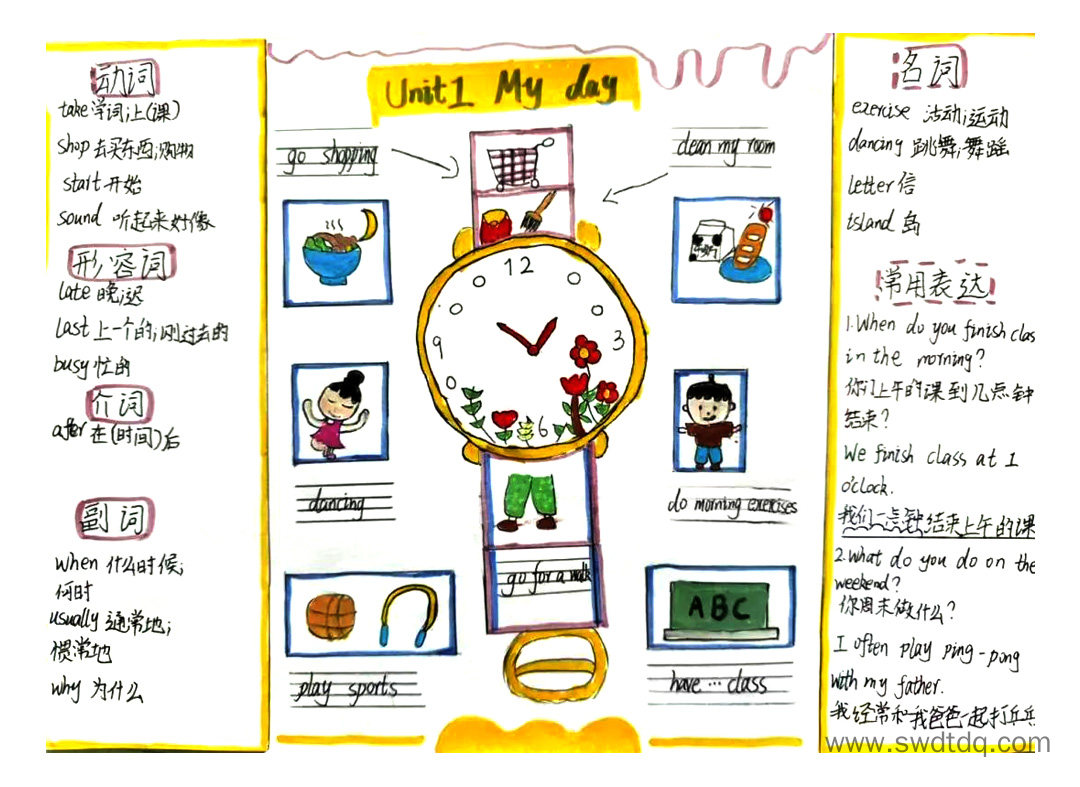 动词
take 学词;上(课)
shop 去买东西;购物
start 开始
sound 听起来好像
形容词
late 晚;迟
last 上一个的;刚过去的
busy 忙的
介词
after 在(时间)后
副词
when 什么时候;
何时
usually 通常地;
惯常地
why 为什么
Unit1 My day
go shopping
clean my room
12
3
6
9
dancing
do morning exercises
go for a walk
A B C
play sports
have ··· class
名词
exercise 活动;运动
dancing 跳舞;舞蹈
letter 信
island 岛
常用表达
1.When do you finish clas
in the morning?
你们上午的课到几点钟
结束?
We finish class at 1
o'clock.
我们一点钟结束上午的课
2.What do you do on the
weekend?
你周末做什么?
I often play ping-pong
with my father.
我经常和我爸爸一起打乒乓
www.swdtdq.com